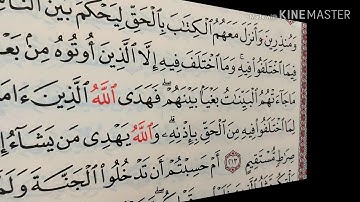 Made with KINEMASTER
وَمُنذِرِينَ وَأَنزَلَ مَعَهُمُ ٱلْكِتَٰبَ بِٱلْحَقِّ لِيَحْكُمَ بَيْنَ
فِيمَا ٱخْتَلَفُوا۟ فِيهِ وَمَا ٱخْتَلَفَ فِيهِ إِلَّا ٱلَّذِينَ أُوتُوهُ مِنۢ
مَا جَآءَتْهُمُ ٱلْبَيِّنَٰتُ بَغْيًۢا بَيْنَهُمْ ۖ فَهَدَى ٱللَّهُ ٱلَّذِينَ
لِمَا ٱخْتَلَفُوا۟ فِيهِ مِنَ ٱلْحَقِّ بِإِذْنِهِۦ ۗ وَٱللَّهُ يَهْدِى مَن يَشَآءُ
صِرَٰطٍ مُّسْتَقِيمٍ ٢١٣ أَمْ حَسِبْتُمْ أَن تَدْخُلُوا۟ ٱلْجَنَّةَ